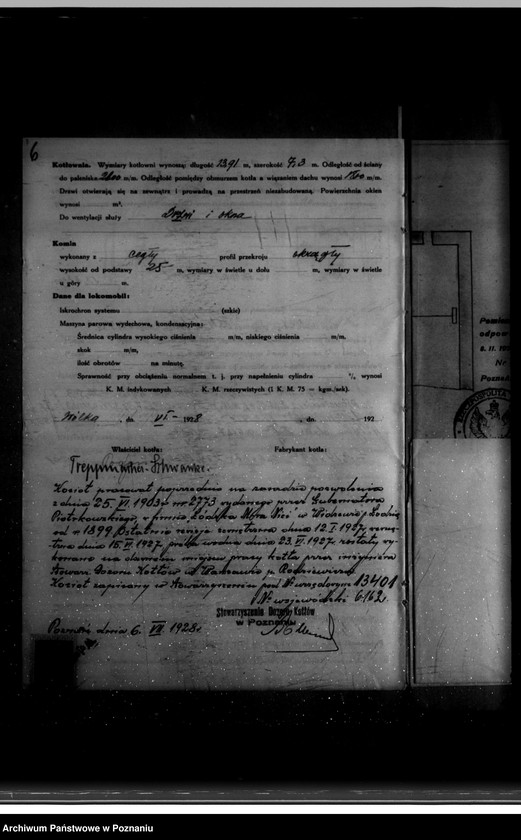 6
Kotłownia. Wymiary kotłowni wynoszą: długość 13.91 m, szerokość 7,3 m. Odległość od ściany
do paleniska m/m. Odległość pomiędzy obmurzem kotła a wiązaniem dachu wynosi m/m.
Drzwi otwierają się na zewnątrz i prowadzą na przestrzeń niezabudowaną. Powierzchnia okien
wynosi m².
Do wentylacji służy Drzwi i okna
Komin
wykonany z cegły profil przekroju okrągły
wysokość od podstawy 25 m, wymiary w świetle u dołu m, wymiary w świetle
u góry m.
Dane dla lokomobil:
Iskrochron systemu (szkic)
Maszyna parowa wydechowa, kondensacyjna:
Średnica cylindra wysokiego ciśnienia m/m, niskiego ciśnienia m/m.
skok m/m,
ilość obrotów na minutę.
Sprawność przy obciążeniu normalnem t. j. przy napełnieniu cylindra %, wynosi
K. M. indykowanych K. M. rzeczywistych (1 K. M. 75 = kgm./sek).
Wilka, dn. VI - 1928 , dn. 192
Właściciel kotła: Fabrykant kotła:
Kocioł pracował poprzednio na zasadzie pozwolenia
z dnia 25. VI. 1903 r. nr. 2773 wydanego przez Gubernatora
Piotrkowskiego, w firmie "Łódzka Nić" w Widzewie / Łodzią
od r. 1899. Ostatnia rewizja zewnętrzna dnia 12. I. 1927, wewnę-
trzna dnia 15. VI. 1927, próba wodna dnia 23. VI. 1927 zostały wy-
konane na dawnem miejscu pracy kotła przez inżyniera
Stowarz. Dozoru Kotłów w Warszawie p.
Kocioł zapisany w Stowarzyszeniu pod Nr. urzędowym 13401
Nr. wojewódzki 6.162.
Stowarzyszenie Dozoru Kotłów
w Poznaniu
Poznań, dnia 6. VII. 1928 r.
odpow
8. 11. 19
Nr
Poznań
Archiwum Państwowe w Poznaniu